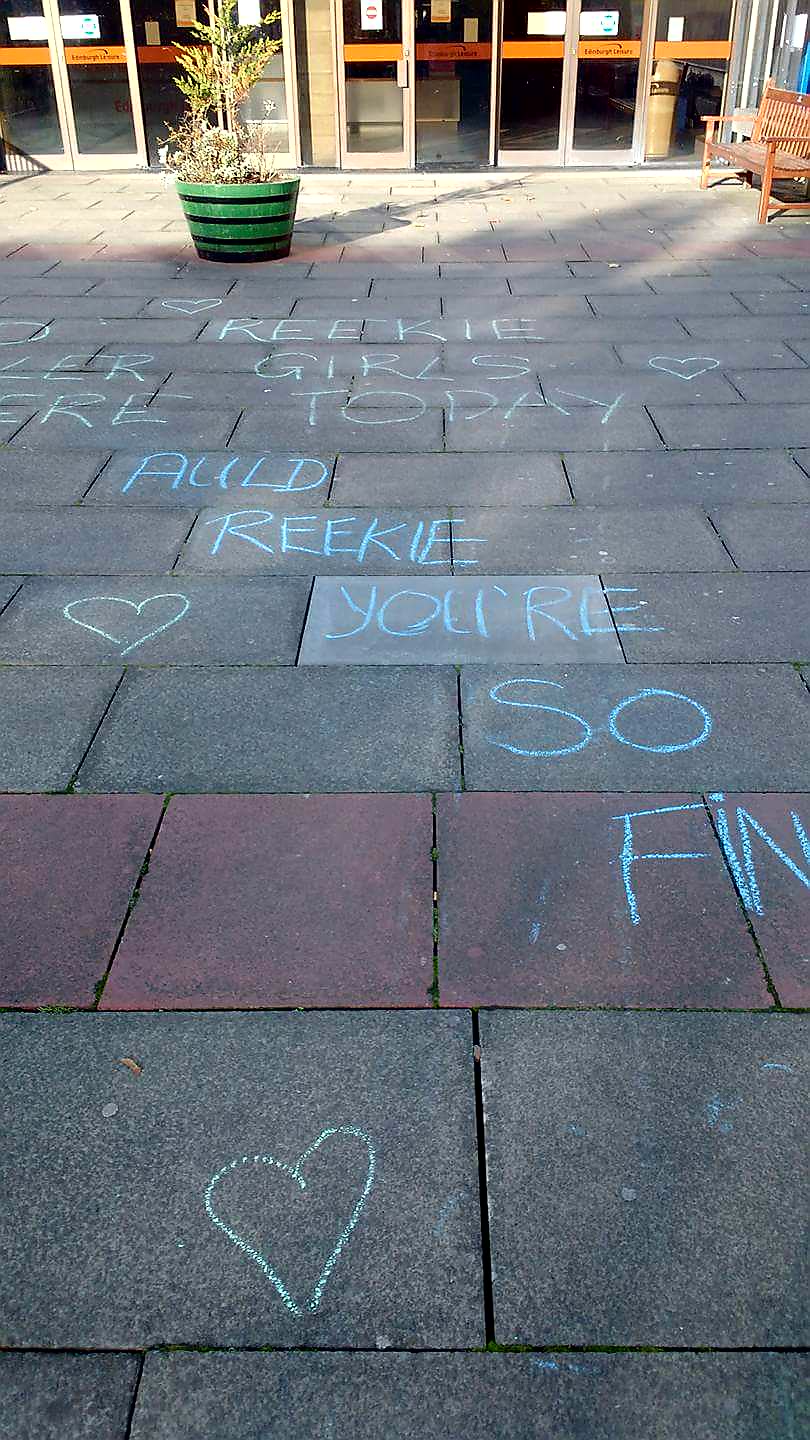 Edinburgh Leisure
Edinburgh Leisure
Edinburgh Leisure
REEKIE
GIRLS
TODAY
AULD
REEKIE
YOU'RE
SO
FIN